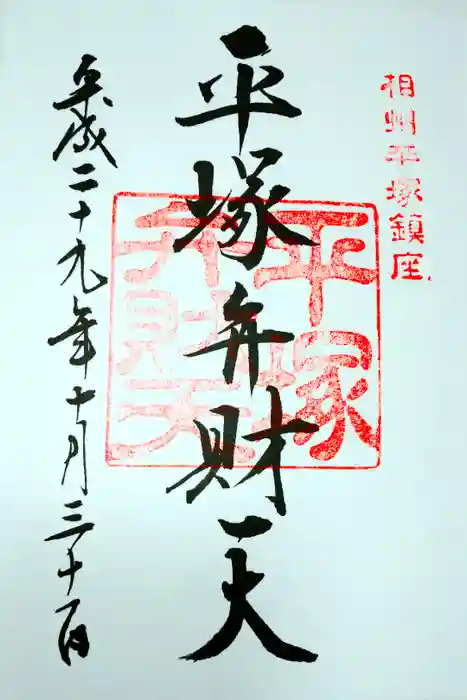 相州平塚鎮座
平塚弁財天
平塚
弁財天
平成二十九年十月三十一日